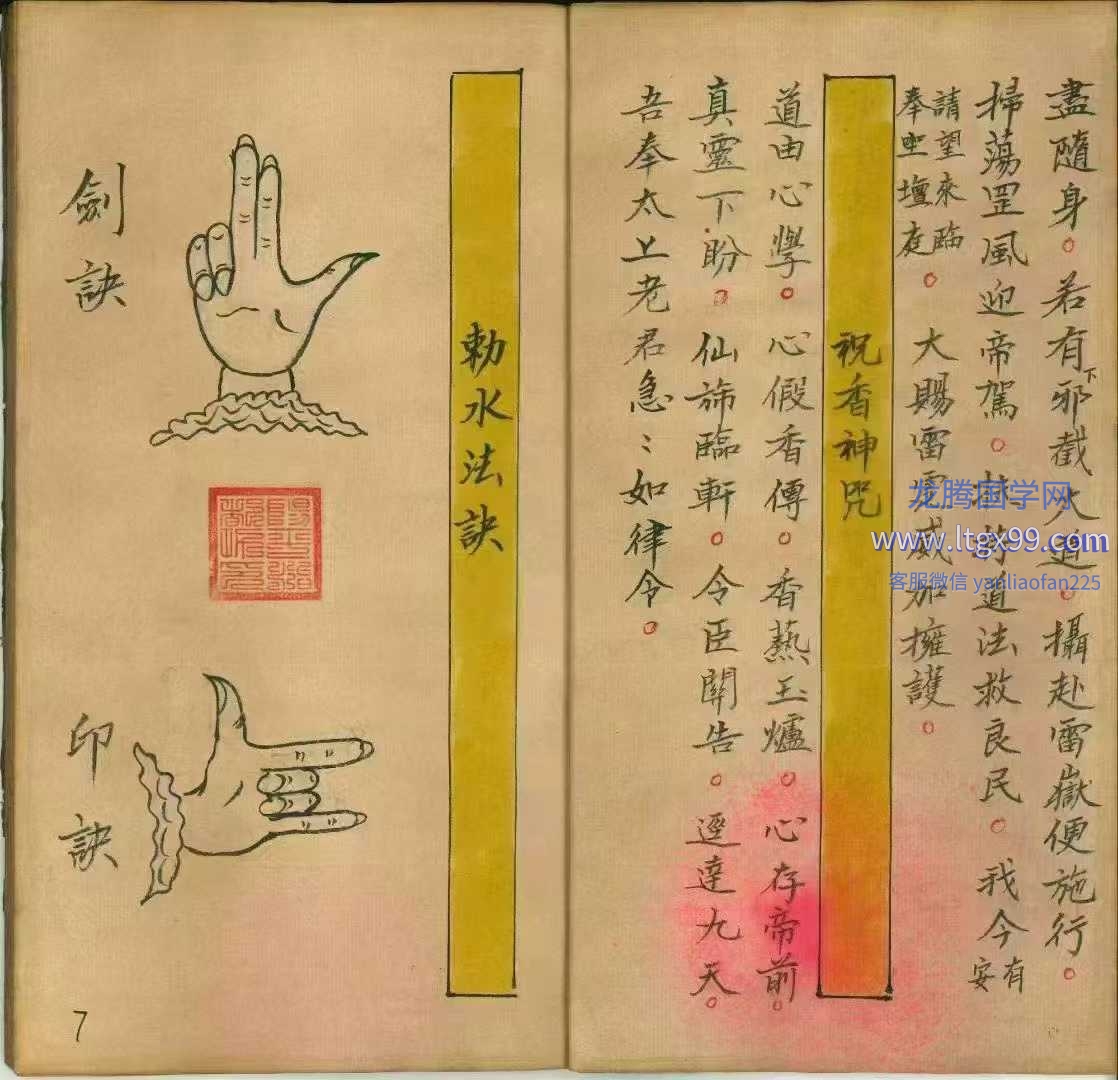 盡隨身。若有下邪截大道。攝赴雷嶽便施行。
掃蕩罡風迎帝駕。道法救良民。我今有安
請望來臨
奉壇庭。大賜雷霆威加擁護。
祝香神咒
道由心學。心假香傳。香爇玉爐。心存帝前。
真靈下盼。仙旆臨軒。令臣關告。逕達九天。
吾奉太上老君急⺀如律令。
勅水法訣
劍訣
印訣
7
龙腾国学网
www.ltgx99.com
客服微信